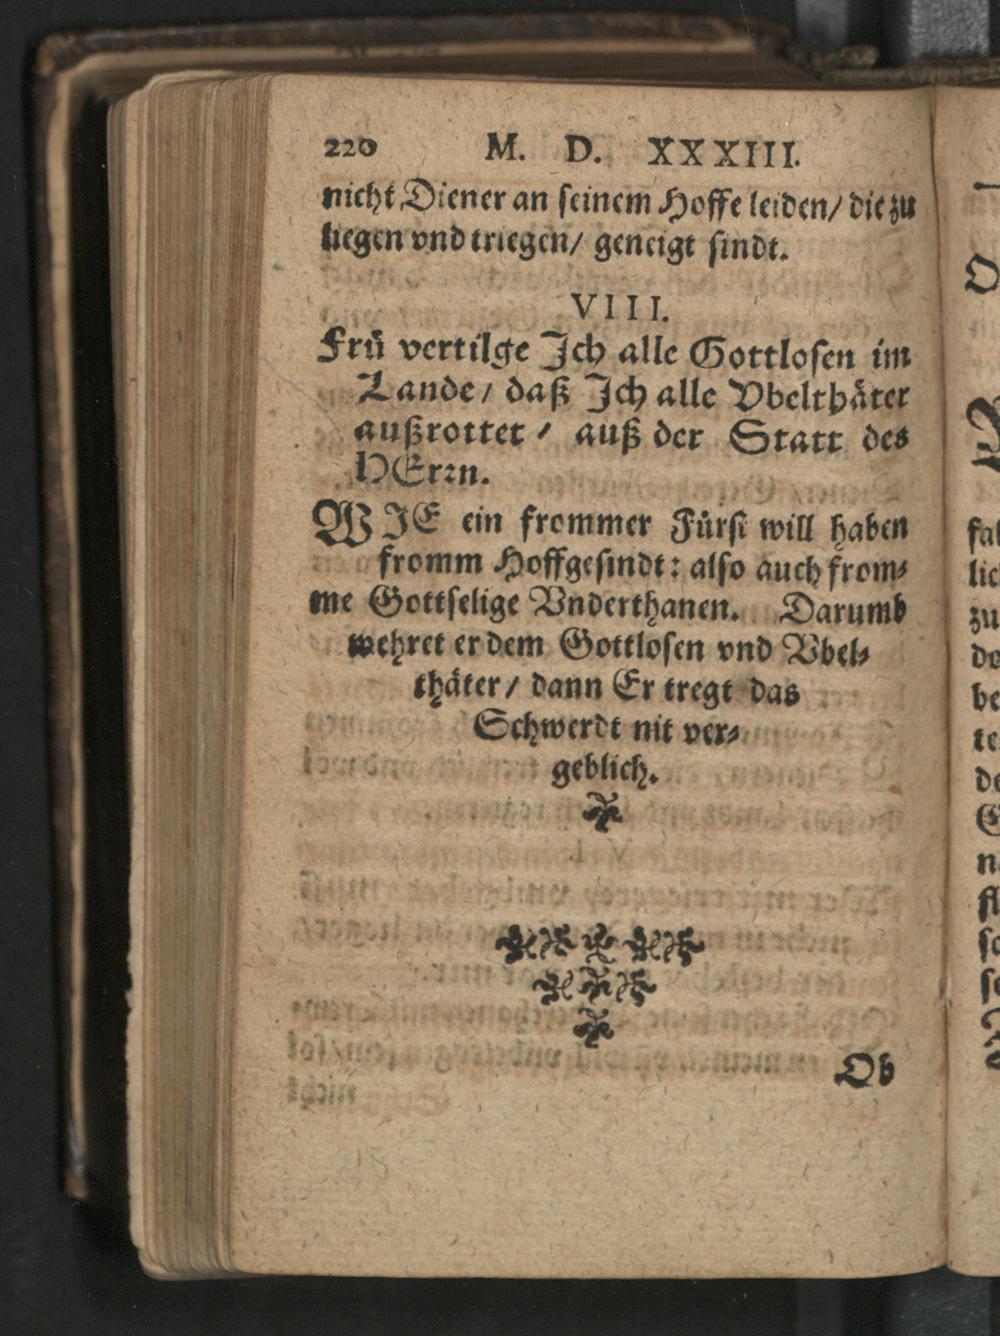 220 M. D. XXXIII.
nicht Diener an seinem Hoffe leiden/ die zu
liegen vnd triegen/ geneigt sindt.
VIII.
Frü vertilge Ich alle Gottlosen im
Lande/ daß Ich alle Vbelthäter
außrottet/ auß der Statt des
HErꝛn.
WIE ein frommer Fürst will haben
fromm Hoffgesindt: also auch from⸗
me Gottselige Vnderthanen. Darumb
wehret er dem Gottlosen vnd Vbel⸗
thäter/ dann Er tregt das
Schwerdt nit ver⸗
geblich.
Ob